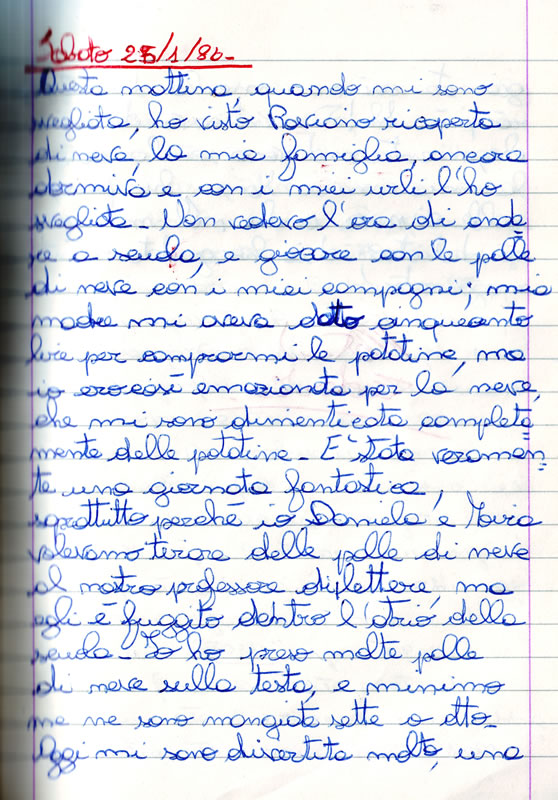 Sabato 25/1/86-
Questa mattina, quando mi sono
svegliata, ho visto Rosciano ricoperta
di neve, la mia famiglia, ancora
dormiva e con i miei urli l'ho
svegliata- Non vedevo l'ora di anda
re a scuola, e giocare con le palle
di neve con i miei compagni; mia
madre mi aveva dato cinquecento
lire per comprarmi le patatine, ma
io ero così emozionata per la neve,
che mi sono dimenticata completa
mente delle patatine- E' stata veramen=
te una giornata fantastica,
soprattutto perchè io Daniela e Moira
volevamo tirare delle palle di neve
al nostro professore di lettere, ma
egli è fuggito dentro l'atrio della
scuola- Io ho preso molte palle
di neve sulla testa, e minimo
me ne sono mangiate sette o otto-
Oggi mi sono divertita molto, una